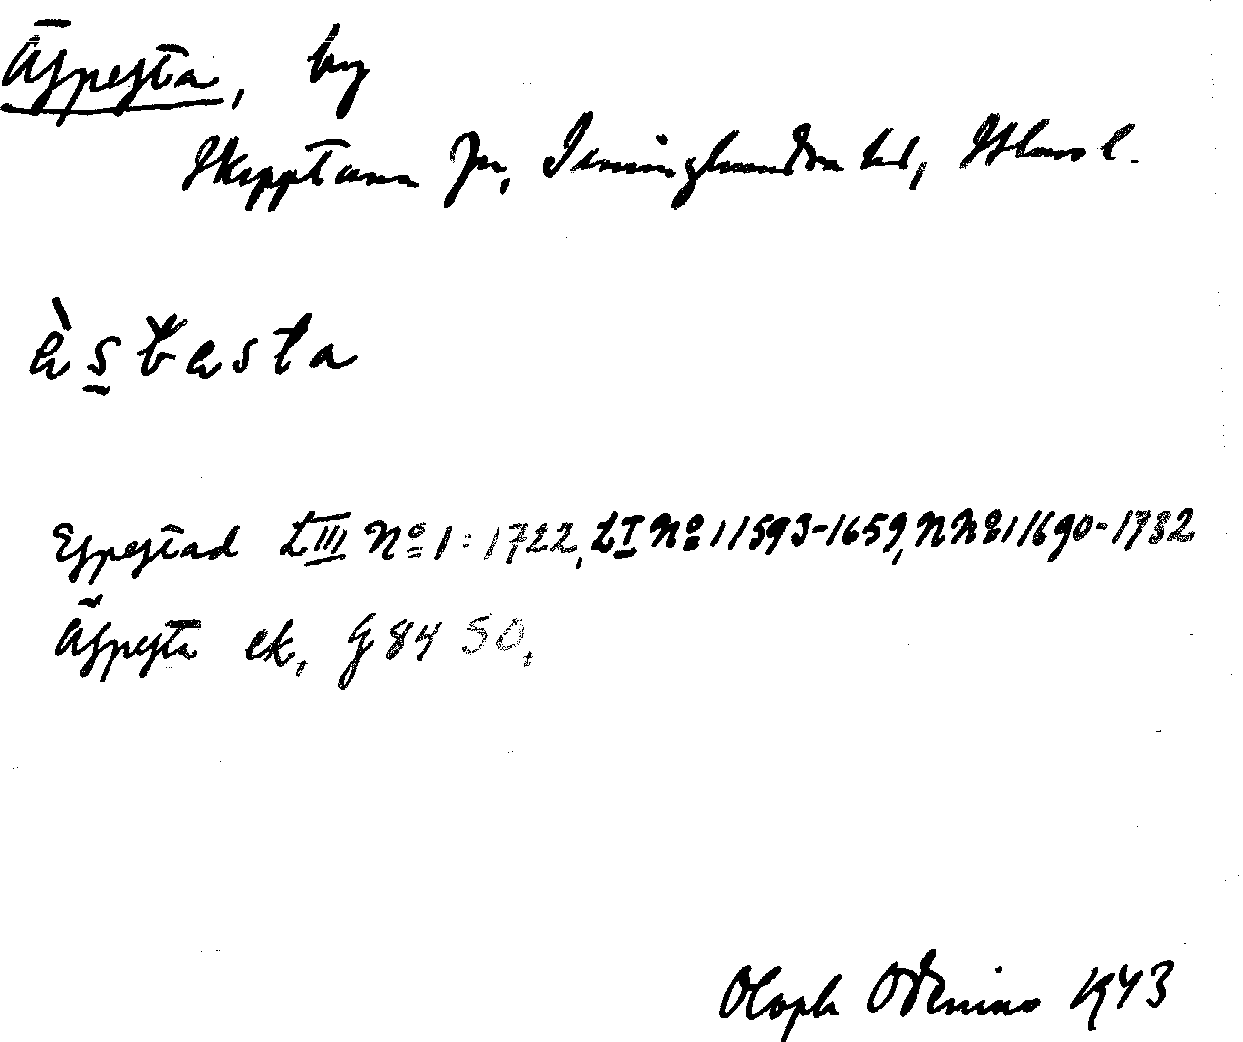 Äspesta, by
Skepptuna sn, Seminghundra hd, Sthms l.
ὰs̱ƀesta
Espestad LIII No 1: 1722, LI No 1 1593-1659, N No 1 1690-1732
Äspesta ek, G 84 SO.
Oloph Odenius 1943